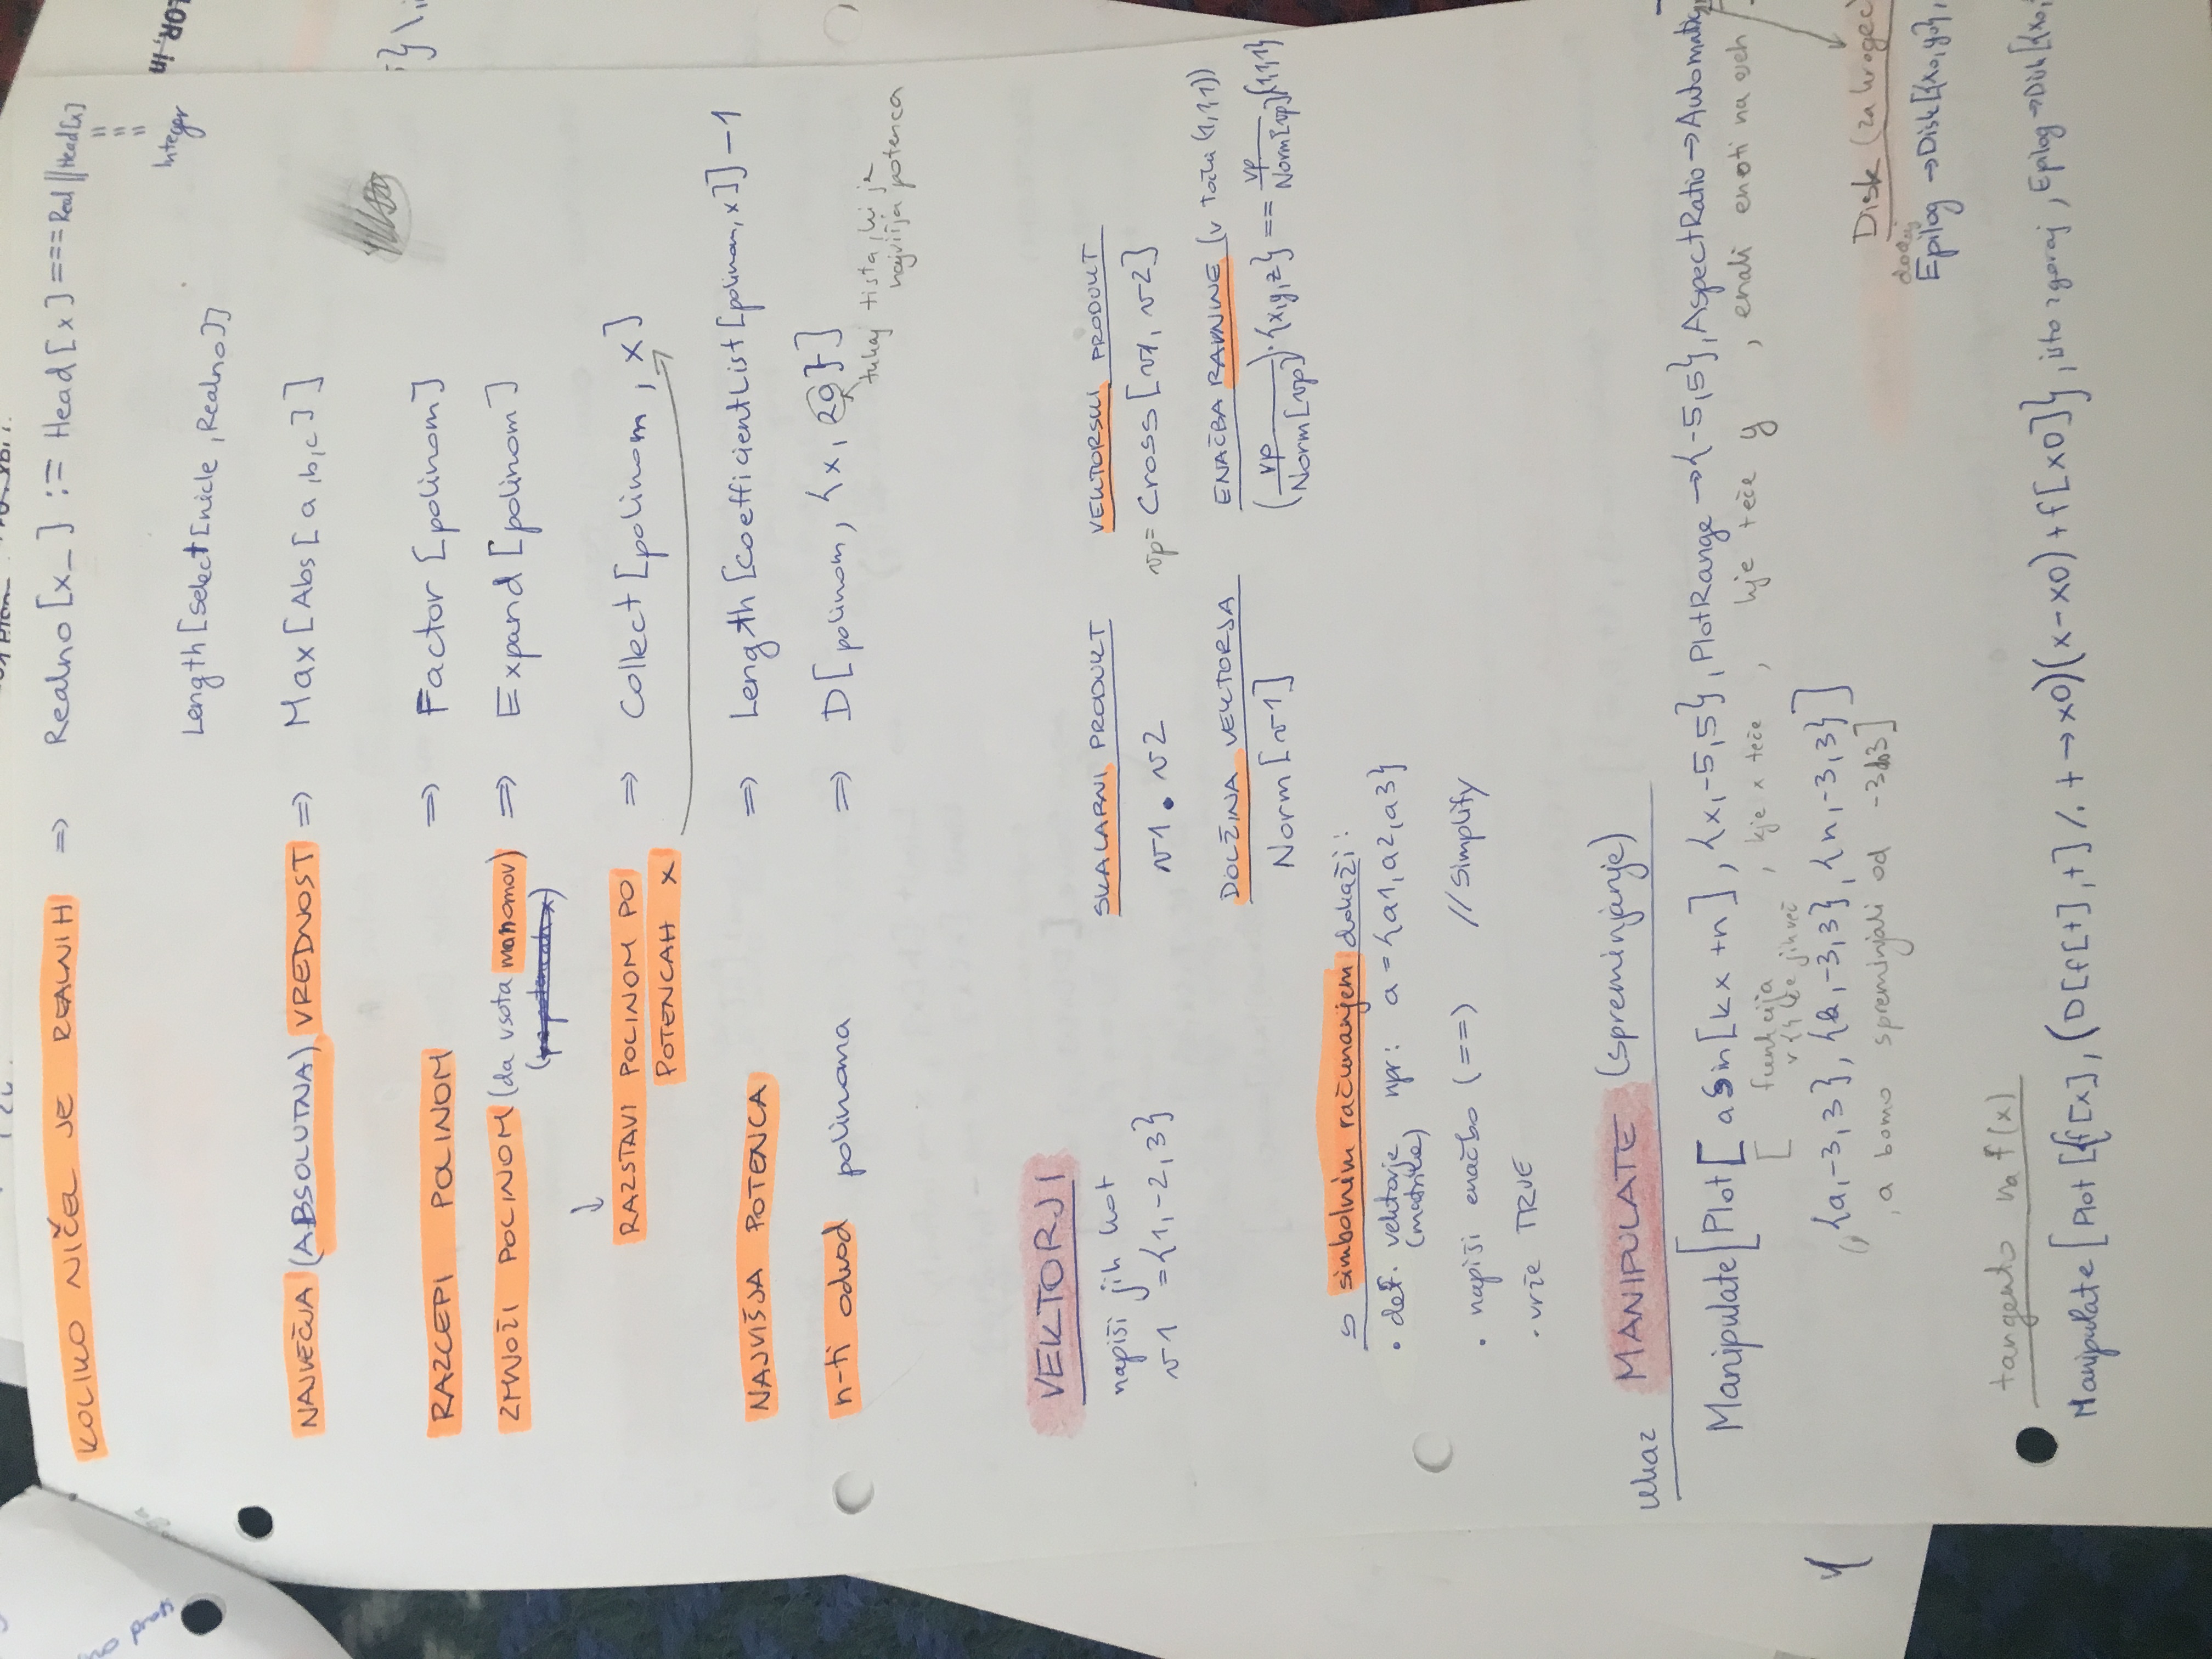 KOLIKO NIČEL JE REALNIH ⇒ Realno[x_] := Head[x] === Real || Head[x] === Integer
Length[Select[nicle, Realno]]
NAJVEČJA (ABSOLUTNA) VREDNOST ⇒ Max[Abs[a,b,c]]
RAZCEPI POLINOM ⇒ Factor[polinom]
ZMNOŽI POLINOM (da vsota monomov) ⇒ Expand[polinom]
(po potencah x)
↓
RAZSTAVI POLINOM PO ⇒ Collect[polinom, x]
POTENCAH x
NAJVIŠJA POTENCA ⇒ Length[CoefficientList[polinom, x]] -1
n-ti odvod polinoma ⇒ D[polinom, {x, 20}]
tukaj tista, ki je
najvišja potenca
VEKTORJI
napiši jih kot
v1 = {1, -2, 3}
SKALARNI PRODUKT
v1 . v2
VEKTORSKI PRODUKT
vp = Cross[v1, v2]
DOLŽINA VEKTORJA
Norm[v1]
ENAČBA RAVNINE (v točki (1,1,1))
(vp / Norm[vp]) . {x,y,z} == vp / Norm[vp] . {1,1,1}
s simbolnim računanjem dokaži:
• def. vektorje npr: a = {a1, a2, a3}
(matrike)
• napiši enačbo (==) // Simplify
• vrže TRUE
ukaz MANIPULATE (spreminjanje)
Manipulate[Plot[a Sin[kx +n], {x,-5,5}, PlotRange → {-5,5}, AspectRatio → Automatic],
[ funkcija , kje x teče , kje teče y , enaki enoti na oseh
v {} če jih več
, {a,-3,3}, {k,-3,3}, {n,-3,3}]
, a bomo spreminjali od -3 do 3]
Disk (za krogec)
dodaj
Epilog → Disk[{x0, y0},
tangento na f(x)
Manipulate[Plot[{f[x], (D[f[t],t] /. t → x0)(x-x0) + f[x0]}, isto zgoraj, Epilog → Disk[{x0,